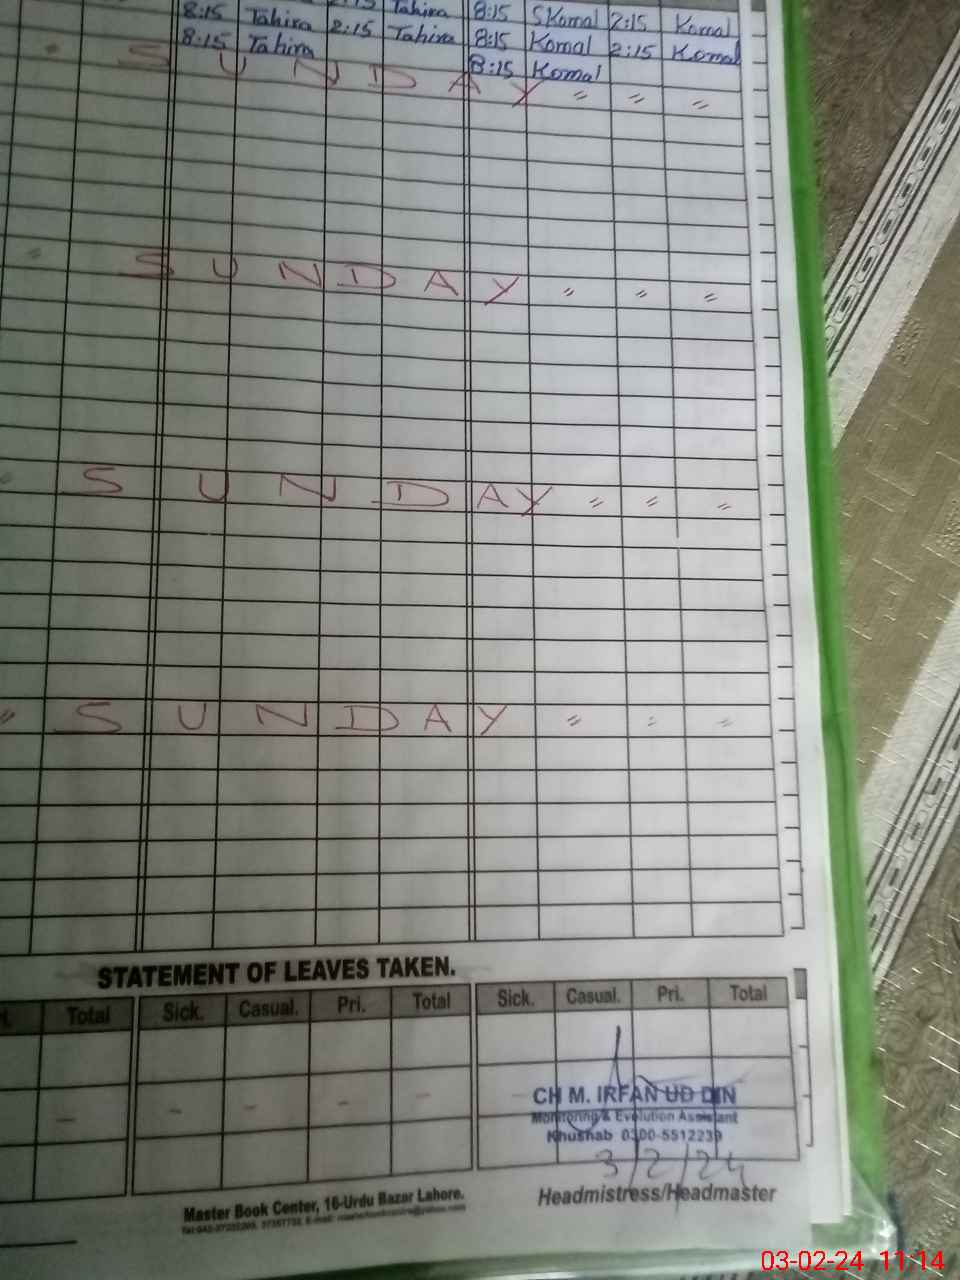 8:15 Tahira 2:15 Tahira 8:15 SKomal 2:15 Komal
8:15 Tahira 2:15 Tahira 8:15 Komal 2:15 Komal
8:15 Komal
SUNDAY " " "
" SUNDAY " " "
SUNDAY " " "
" SUNDAY " " "
STATEMENT OF LEAVES TAKEN.
Total Sick. Casual. Pri. Total Sick. Casual. Pri. Total
CH M. IRFAN UD DIN
Monitoring & Evolution Assistant
Khushab 0300-5512239
3/2/24
Headmistress/Headmaster
Master Book Center, 16-Urdu Bazar Lahore.
03-02-24 11:14